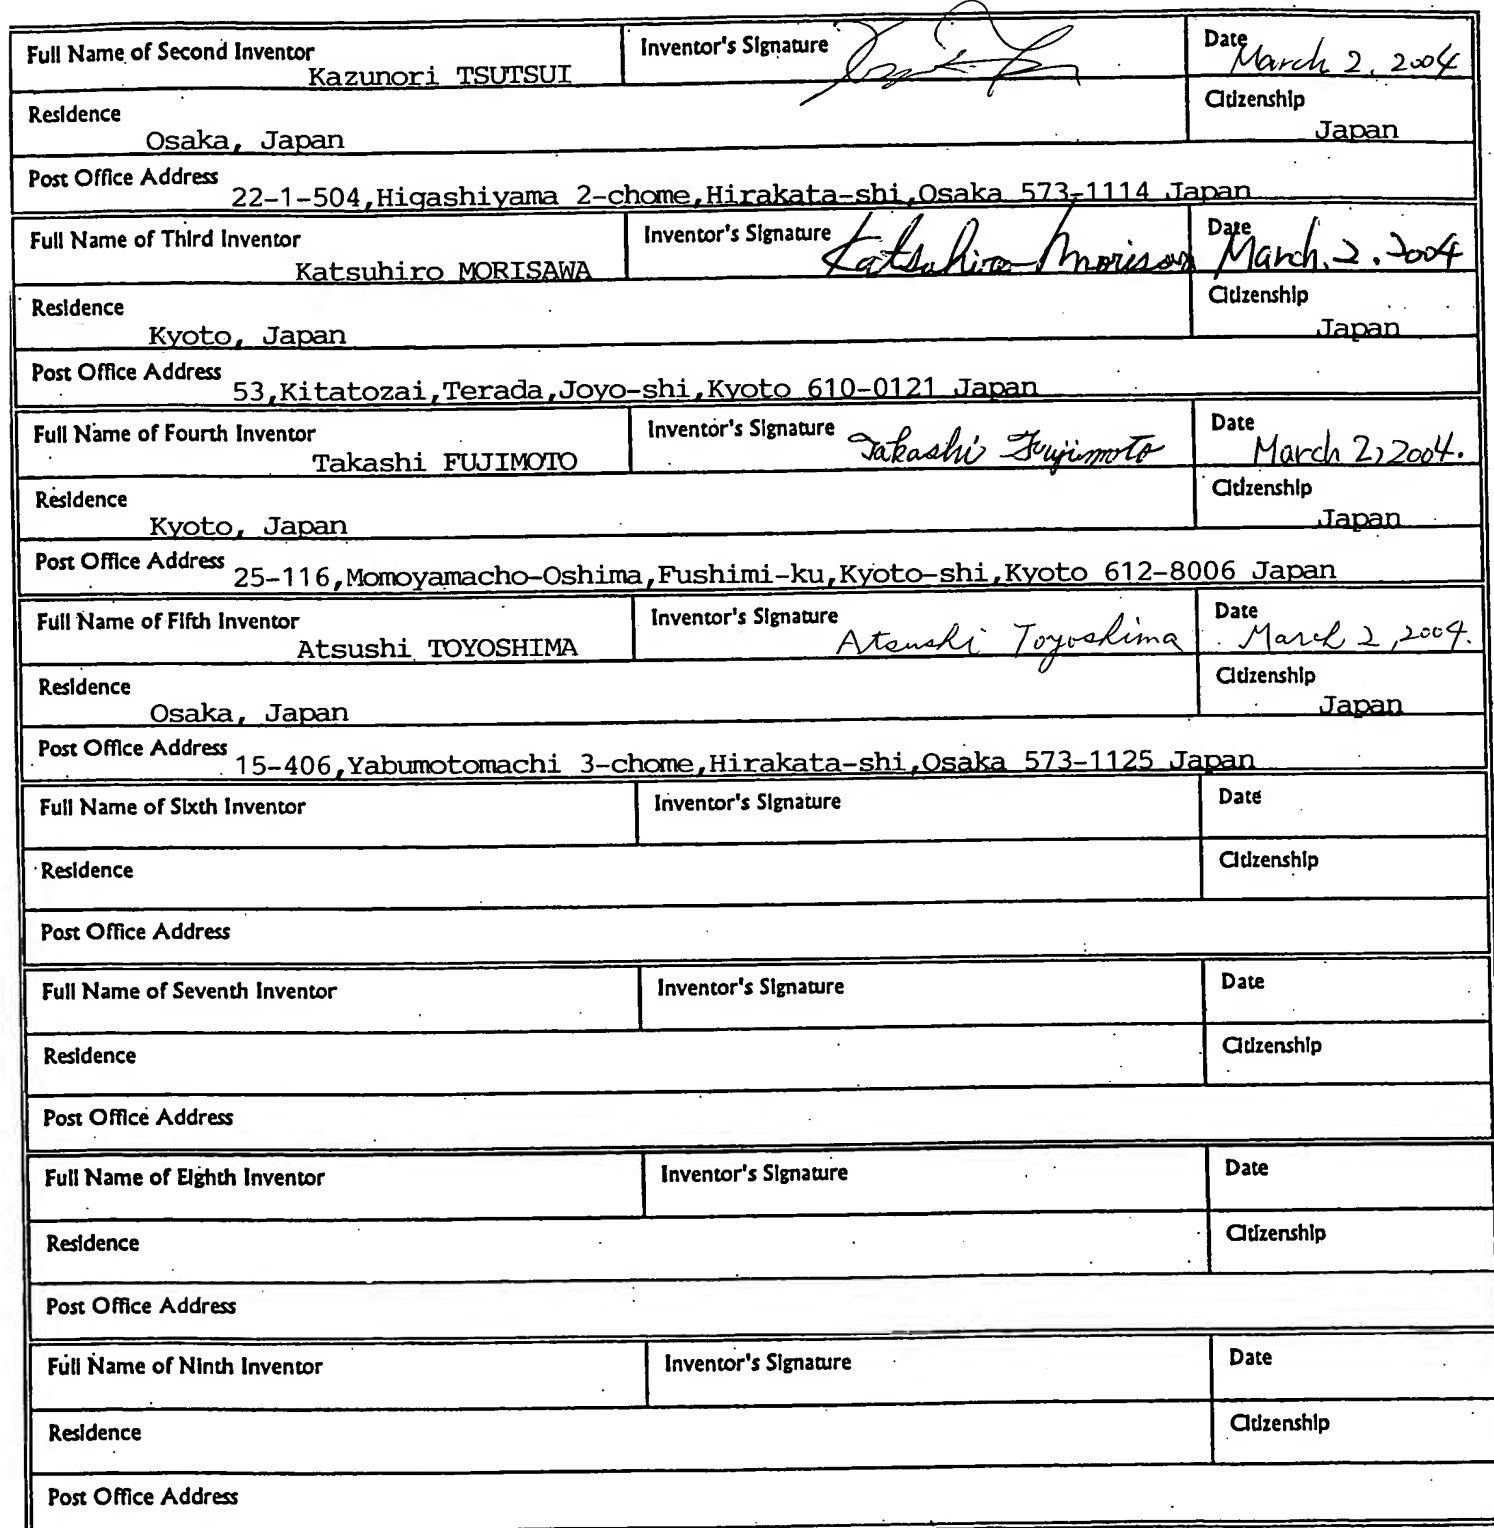 Full Name of Second Inventor Inventor's Signature Date
Kazunori TSUTSUI March 2, 2004
Residence Citizenship
Osaka, Japan Japan
Post Office Address 22-1-504,Higashiyama 2-chome,Hirakata-shi,Osaka 573-1114 Japan
Full Name of Third Inventor Inventor's Signature Date
Katsuhiro MORISAWA Katsuhiro Morisawa March. 2. 2004
Residence Citizenship
Kyoto, Japan Japan
Post Office Address 53,Kitatozai,Terada,Joyo-shi,Kyoto 610-0121 Japan
Full Name of Fourth Inventor Inventor's Signature Date
Takashi FUJIMOTO Takashi Fujimoto March 2, 2004.
Residence Citizenship
Kyoto, Japan Japan
Post Office Address 25-116,Momoyamacho-Oshima,Fushimi-ku,Kyoto-shi,Kyoto 612-8006 Japan
Full Name of Fifth Inventor Inventor's Signature Date
Atsushi TOYOSHIMA Atsushi Toyoshima March 2, 2004.
Residence Citizenship
Osaka, Japan Japan
Post Office Address 15-406,Yabumotomachi 3-chome,Hirakata-shi,Osaka 573-1125 Japan
Full Name of Sixth Inventor Inventor's Signature Date
Residence Citizenship
Post Office Address
Full Name of Seventh Inventor Inventor's Signature Date
Residence Citizenship
Post Office Address
Full Name of Eighth Inventor Inventor's Signature Date
Residence Citizenship
Post Office Address
Full Name of Ninth Inventor Inventor's Signature Date
Residence Citizenship
Post Office Address